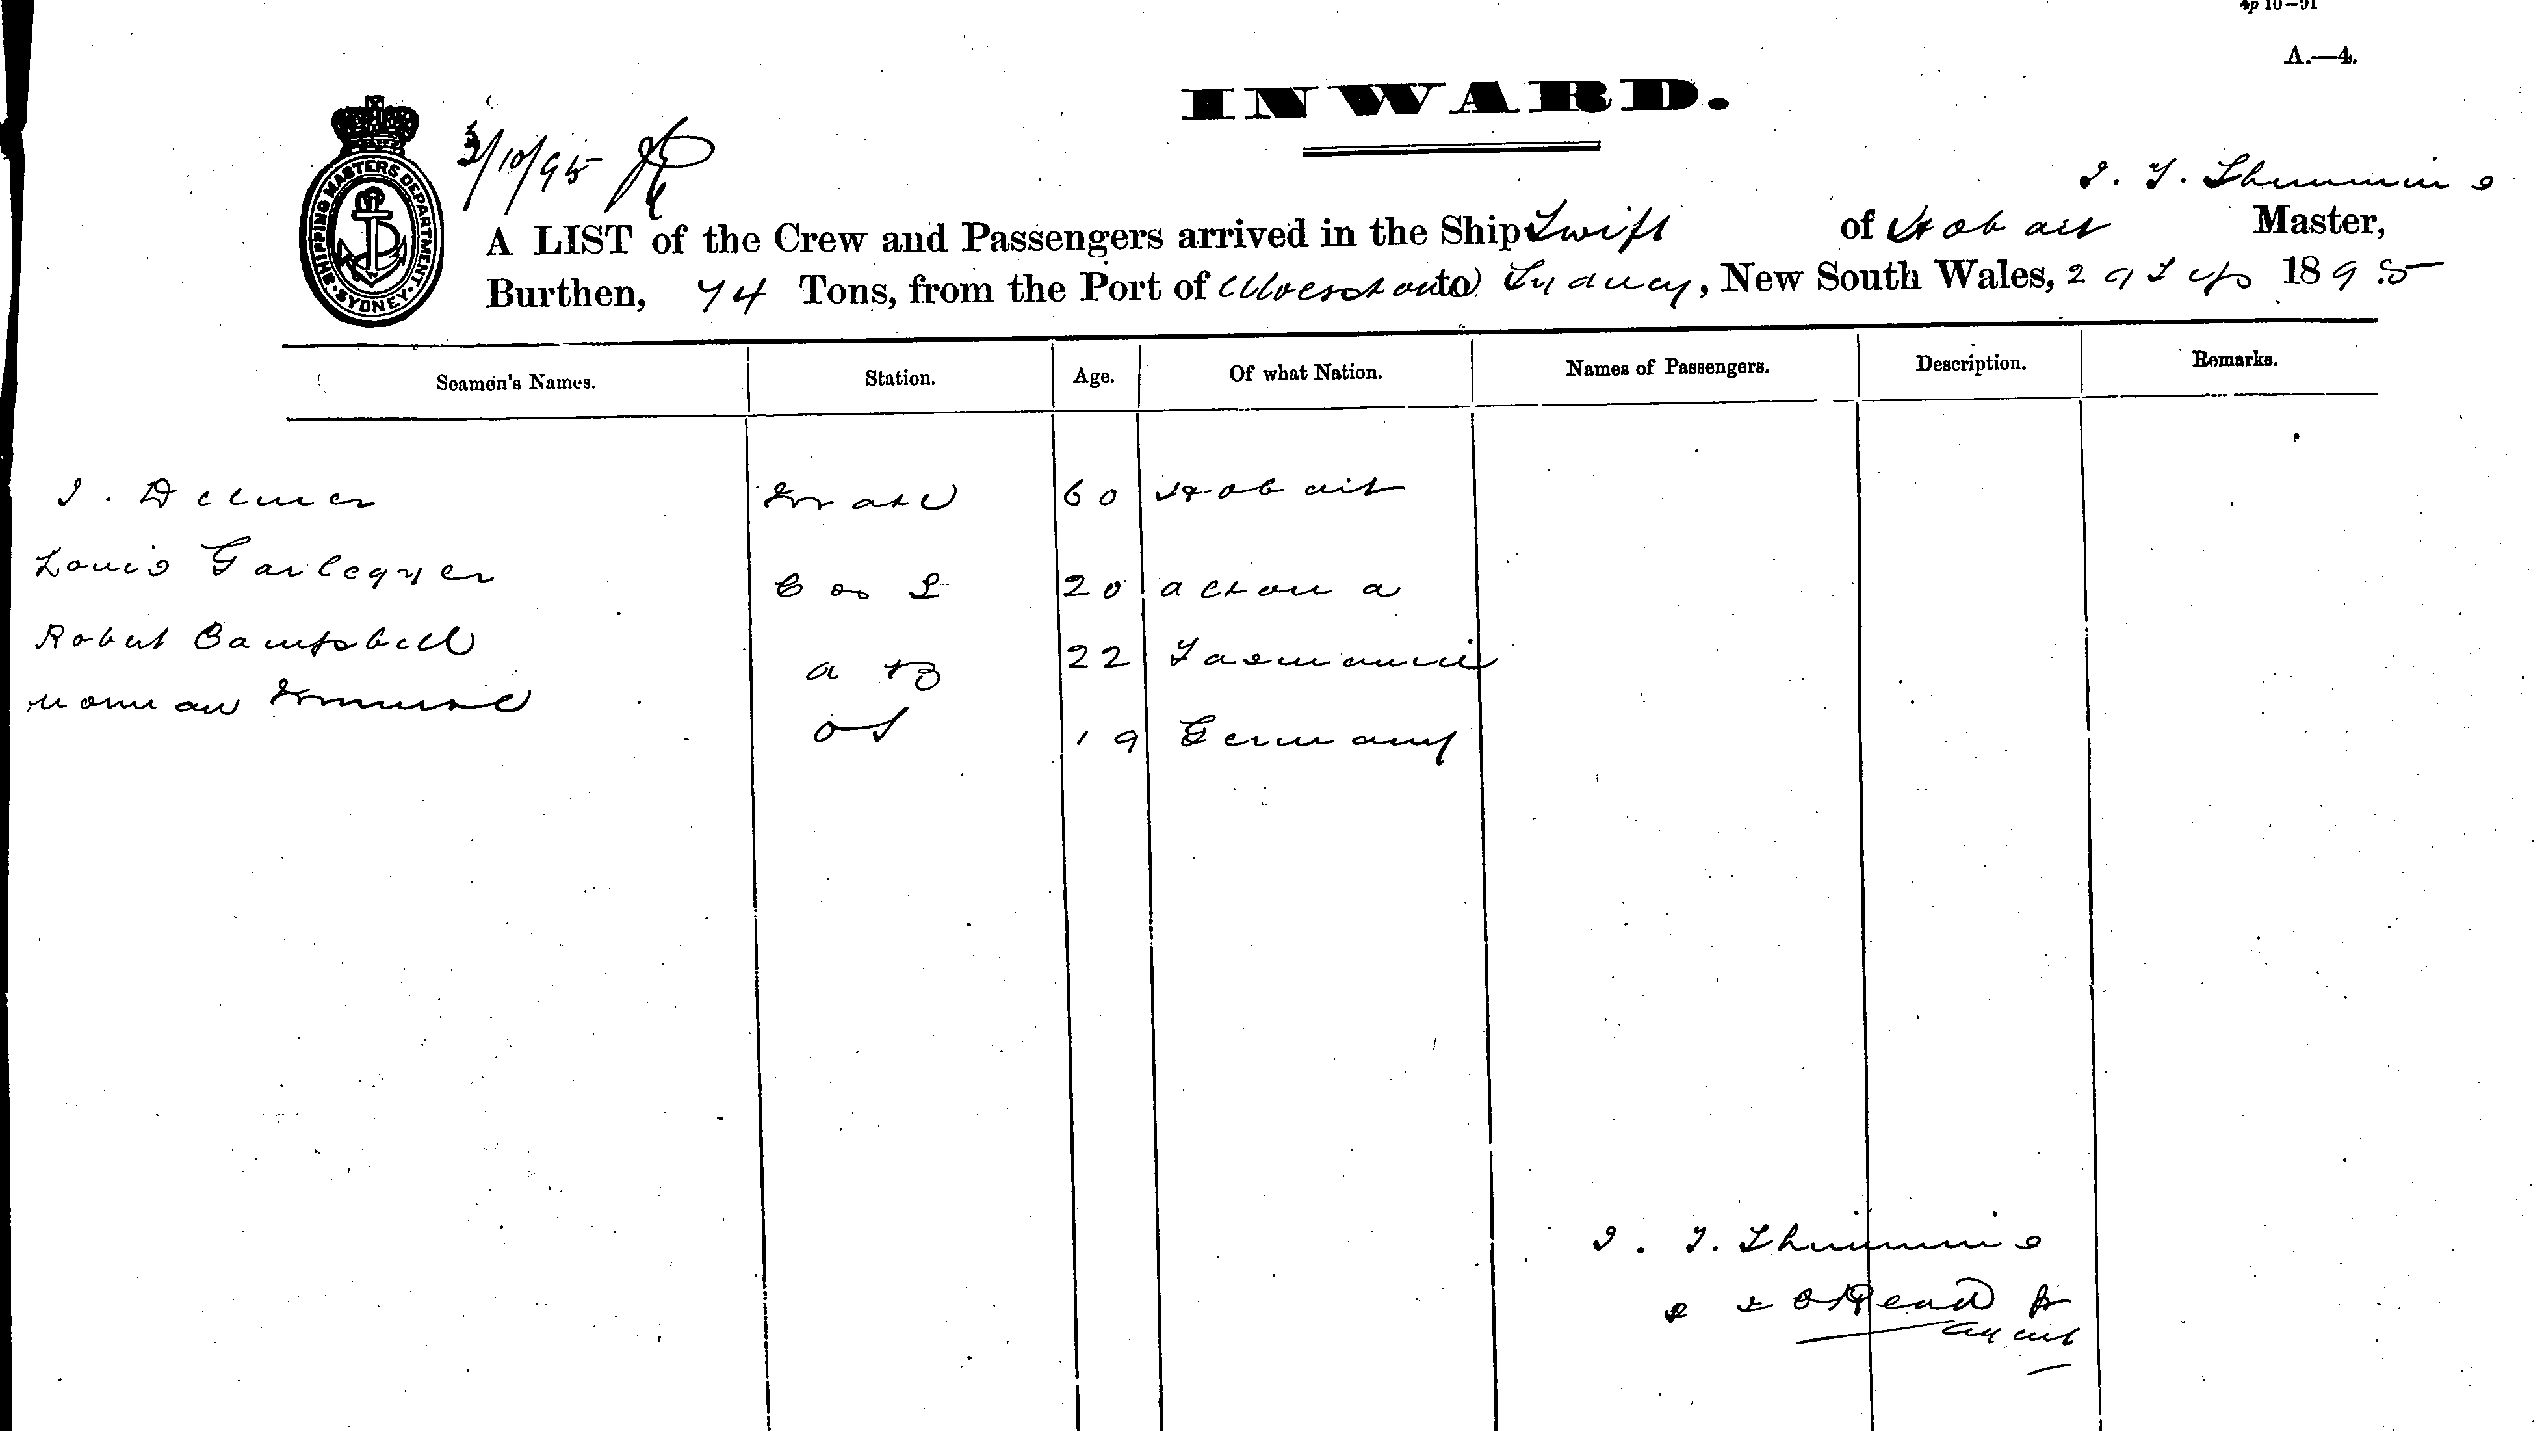 4p 10—91
A.—4.
INWARD.
SHIPPING MASTERS DEPARTMENT. SYDNEY.
3/10/95
J. T. Thimmins
A LIST of the Crew and Passengers arrived in the Ship Swift of Hobart Master,
Burthen, 74 Tons, from the Port of Ulverston to Sydney, New South Wales, 29 Sep 1895
Seamen's Names. Station. Age. Of what Nation. Names of Passengers. Description. Remarks.
J. Delmer Mate 60 Hobart
Louis 20
Robert Campbell A B 22 Tasmania
Norman O S 19 Germany
J. T. Thimmins
Read
Agent